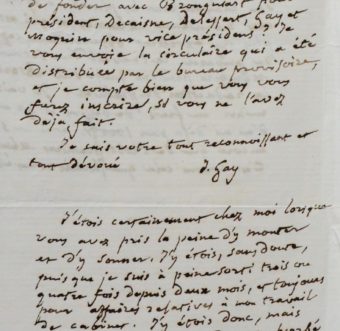 de fonder avec Brongniart pour
président, Decaisne, Delessert, Gay et
Moquine pour vice président! Je
vous envoie la circulaire qui a été
distribuée par le bureau provisoire,
et je compte bien que vous vous
ferez inscrire, si vous ne l'avez
déja fait.
Je suis votre tout reconnoissant et
tout dévoué
J. Gay
J'étois certainement chez moi lorsque
vous avez pris la peine d'y monter
et d'y sonner. J'y étois, sans doute,
puis que je suis à peine sorti trois ou
quatre fois depuis deux mois, et toujours
pour affaires relatives à mon travail
de cabinet. J'y étois donc, mais